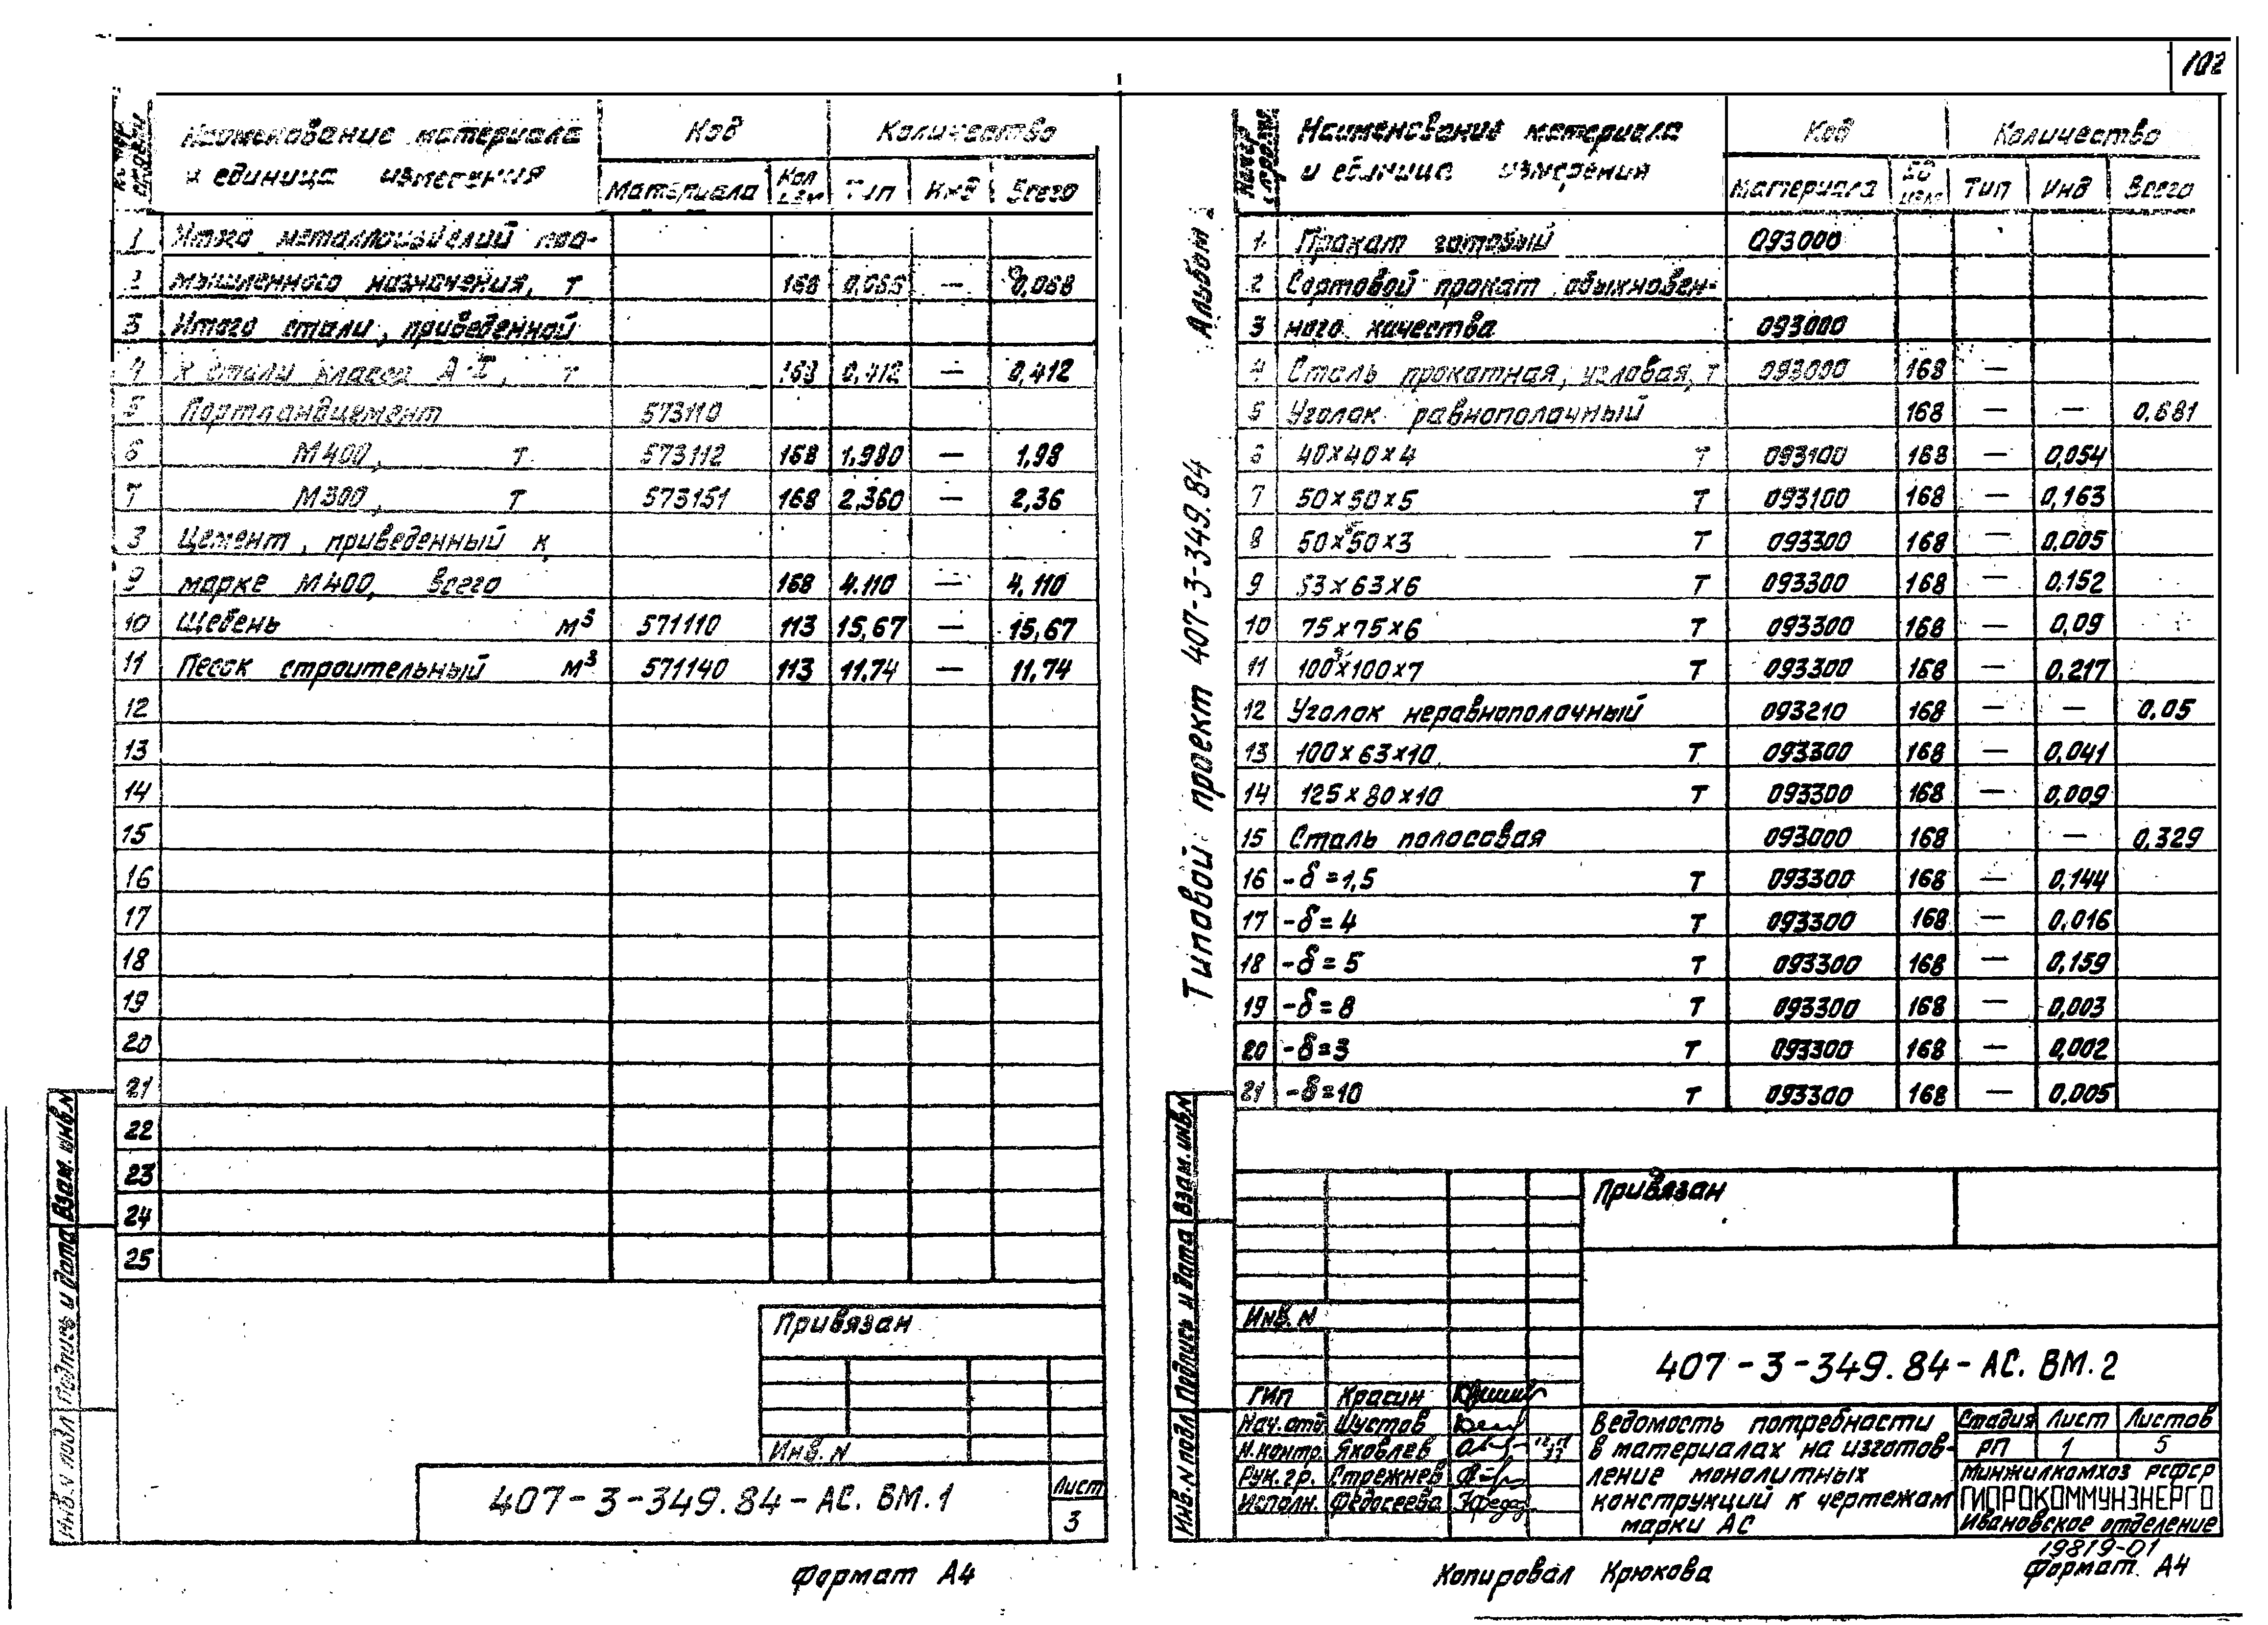 102
Номер строки
Наименование материала и единица измерения
Код
Количество
Материала
Тип
Инд
Всего
1 Итого металлоизделий про-
2 мышленного назначения, т 168 0,068 — 0,068
3 Итого стали, приведенной
4 к стали класса А-I, т 168 0,412 — 0,412
5 Портландцемент 573110
6 М400, т 573112 168 1,980 — 1,98
7 М300, т 573151 168 2,360 — 2,36
8 Цемент, приведенный к
9 марке М400, всего 168 4.110 — 4,110
10 Щебень м3 571110 113 15,67 — 15,67
11 Песок строительный м3 571140 113 11.74 — 11,74
12
13
14
15
16
17
18
19
20
21
22
23
24
25
Привязан
Инв. N
407-3-349.84-АС. ВМ.1
Лист
3
Инв. N подл
Подпись и дата
Взам. инв. N
Формат А4
Альбом
Типовой проект 407-3-349.84
Номер строки
Наименование материала и единица измерения
Код
Количество
Материала
Тип
Инд
Всего
1 Прокат готовый 093000
2 Сортовой прокат обыкновен-
3 ного качества 093000
4 Сталь прокатная, угловая, т 093000 168 —
5 Уголок равнополочный 168 — — 0,681
6 40×40×4 т 093100 168 — 0,054
7 50×50×5 т 093100 168 — 0,163
8 50×50×3 т 093300 168 — 0.005
9 63×63×6 т 093300 168 — 0.152
10 75×75×6 т 093300 168 — 0,09
11 100×100×7 т 093300 168 — 0.217
12 Уголок неравнополочный 093210 168 — — 0,05
13 100×63×10 т 093300 168 — 0,041
14 125×80×10 т 093300 168 — 0,009
15 Сталь полосовая 093000 168 — 0,329
16 -δ=1,5 т 093300 168 — 0,144
17 -δ=4 т 093300 168 — 0,016
18 -δ=5 т 093300 168 — 0,159
19 -δ=8 т 093300 168 — 0,003
20 -δ=3 т 093300 168 — 0,002
21 -δ=10 т 093300 168 — 0,005
Привязан
Инв. N
407-3-349.84-АС. ВМ.2
ГИП Красин
Нач. отд Шустов
Н. контр. Яковлев
Рук. гр. Стрежнев
Исполн. Федосеева
Ведомость потребности
в материалах на изготов-
ление монолитных
конструкций к чертежам
марки АС
Стадия Лист Листов
РП 1 5
Минжилкомхоз РСФСР
ГИПРОКОММУНЭНЕРГО
Ивановское отделение
Инв. N подл
Подпись и дата
Взам. инв. N
19819-01
Копировал Крюкова
Формат А4